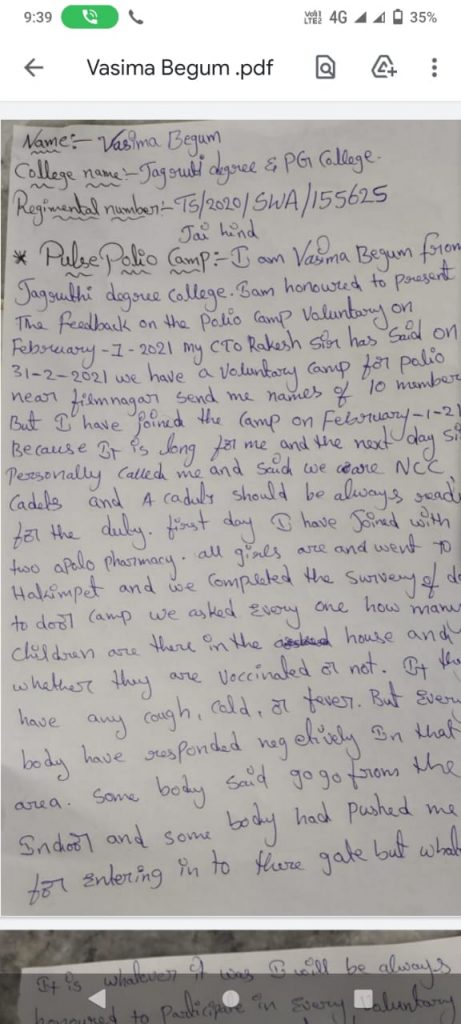 9:39
Vo)) LTE2 4G 35%
Vasima Begum .pdf
Name:- Vasima Begum
College name:- Jagruti degree & PG College.
Regimental number:- TS/2020/SWA/155625
Jai hind
* Pulse Polio Camp:- I am Vasima Begum from
Jagruthi degree college. I am honoured to present
The feedback on the Polio Camp Voluntary on
February-1-2021 my CTO Rakesh Sir has Said on
31-2-2021 we have a voluntary camp for polio
near filmnagar send me names of 10 member
But I have joined the camp on February-1-21
Because It is long for me and the next day Si
Personally called me and Said we are NCC
Cadets and A cadets should be always read
for the duty. first day I have Joined with
two apolo pharmacy. all girls are and went to
Hakimpet and we completed the Survey of do
to door camp we asked every one how many
children are there in the house and
whether they are Vaccinated or not. It the
have any cough, cold, or fever. But every
body have responded negetively In that
area. Some body said go go from the
Indoor and some body had pushed me
for entering in to there gate but what
It is whatever it was I will be always
honoured to Participate in every Voluntary